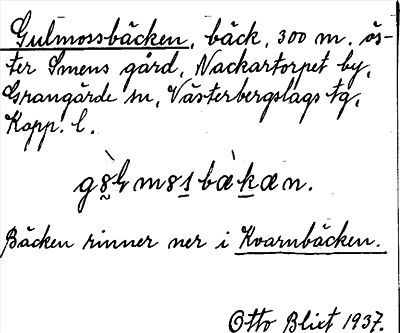 Gulmossbäcken, bäck, 300 m. ös-
ter Smens gård, Nackartorpet by,
Grangärde sn, Västerbergslags tg,
Kopp. l.
Bäcken rinner ner i Kvarnbäcken.
Otto Blixt 1937.